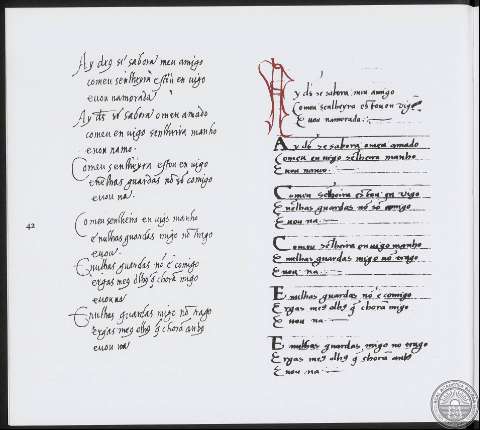 Ay deg se sabora meu amigo
comeu senlheyra estou en uigo
euou namorada
Ay ds se sabora o meu amado
comeu en uigo senlheira manho
euou namo.
Comeu senlheyra estou en uigo
enulhas guardas nō sō comigo
euou na.
Comeu senlheira en uigo manho
e nulhas guardas migo nō trago
euou.
Enulhas guardas nō é comigo
ergas meg olhg q̄ chorā migo
euou na
Enulhas guardas migo nō trago
ergas meg olhg q̄ chorā anbg
euou na
42
Ay ds se sabora meu amigo
Comeu senlheyra estou en vigo
E uou namorada.
Ay ds se sabora o meu amado
Comeu en uigo sēlheira manho
E uou namo.
Comeu sēlheira estou en vigo
E nulhas guardas nō sō migo
E uou na.
Comeu sēlheira en uigo manho
E nulhas guardas migo nō trago
E uou na.
E nulhas guardas nō é comigo
Ergas meg olhg q̄ chorā migo
E uou na
E nulhas guardas migo no trago
Ergas meg olhg q̄ chorā anbg
E uou na.